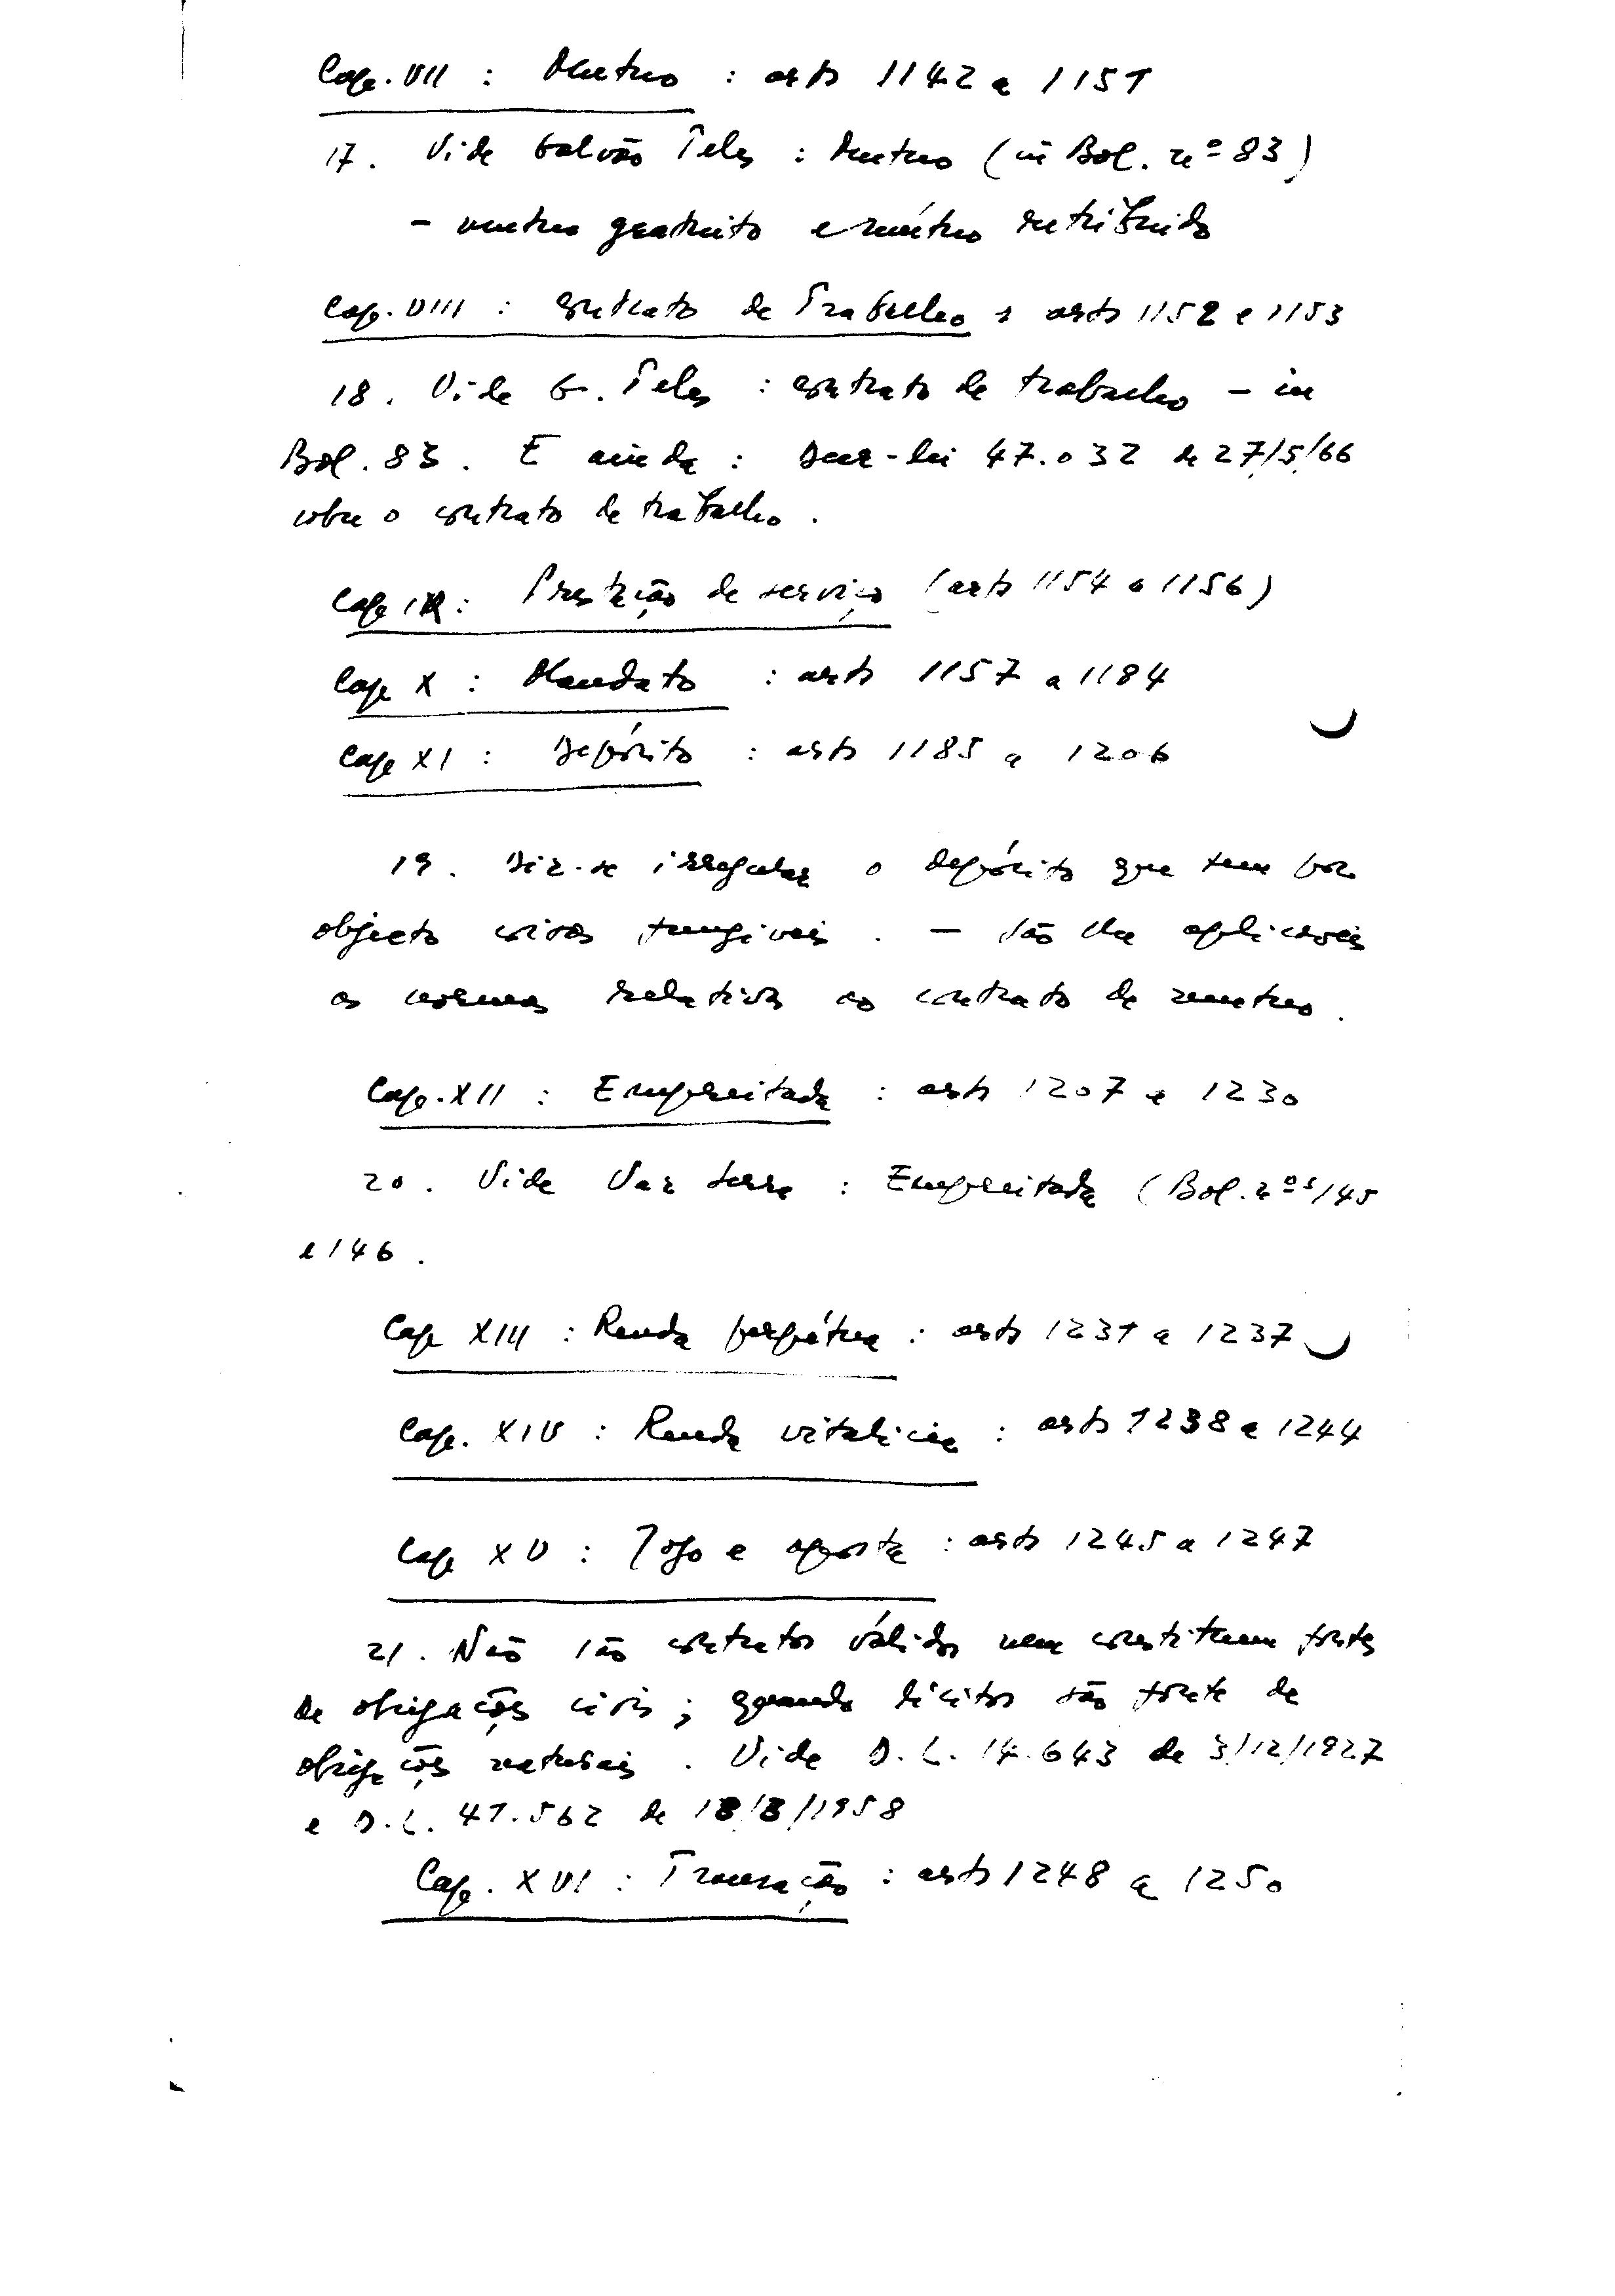 Cap. VII : Mutuo : arts 1142 a 1151
17. Vide Galvão Teles : Mutuo (in Bol. nº 83)
- mutuo gratuito e mútuo retribuido
Cap. VIII : Contrato de Trabalho : arts 1152 e 1153
18. Vide G. Teles : contrato de trabalho - in
Bol. 83. E ainda : Decr-lei 47.032 de 27/5/66
sobre o contrato de trabalho.
Cap IX : Prestação de serviço (arts 1154 a 1156)
Cap X : Mandato : arts 1157 a 1184
Cap XI : Depósito : arts 1185 a 1206
19. Diz-se irregular o depósito que tem por
objecto coisas fungiveis. - São lhe aplicaveis
as normas relativas ao contrato de mutuo.
Cap. XII : Empreitada : arts 1207 a 1230
20. Vide Vaz Serra : Empreitada (Bol. nºs 145
e 146.
Cap XIII : Renda perpétua : arts 1231 a 1237
Cap. XIV : Renda vitalicia : arts 1238 a 1244
Cap XV : Jogo e aposta : arts 1245 a 1247
21. Não são contratos válidos nem constituem fontes
de obrigações civis ; quando lícitos são fonte de
obrigações naturais. Vide D. L. 14.643 de 3/12/1927
e D. L. 41.562 de 18/3/1958
Cap. XVI : Transação : arts 1248 a 1250